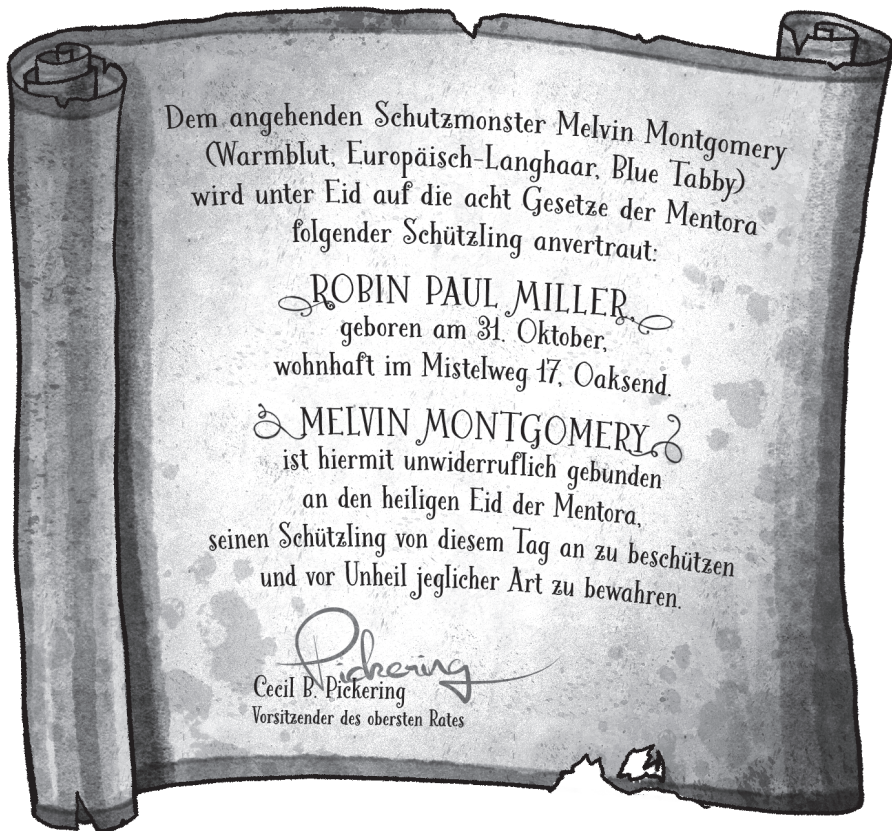 Dem angehenden Schutzmonster Melvin Montgomery
(Warmblut, Europäisch-Langhaar, Blue Tabby)
wird unter Eid auf die acht Gesetze der Mentora
folgender Schützling anvertraut:
ROBIN PAUL MILLER,
geboren am 31. Oktober,
wohnhaft im Mistelweg 17, Oaksend.
MELVIN MONTGOMERY
ist hiermit unwiderruflich gebunden
an den heiligen Eid der Mentora,
seinen Schützling von diesem Tag an zu beschützen
und vor Unheil jeglicher Art zu bewahren.
Pickering
Cecil B. Pickering
Vorsitzender des obersten Rates